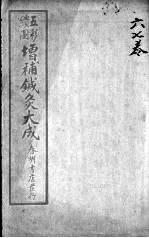 六七卷
五彩
繪圖
增補鍼灸大成
春明書店發行